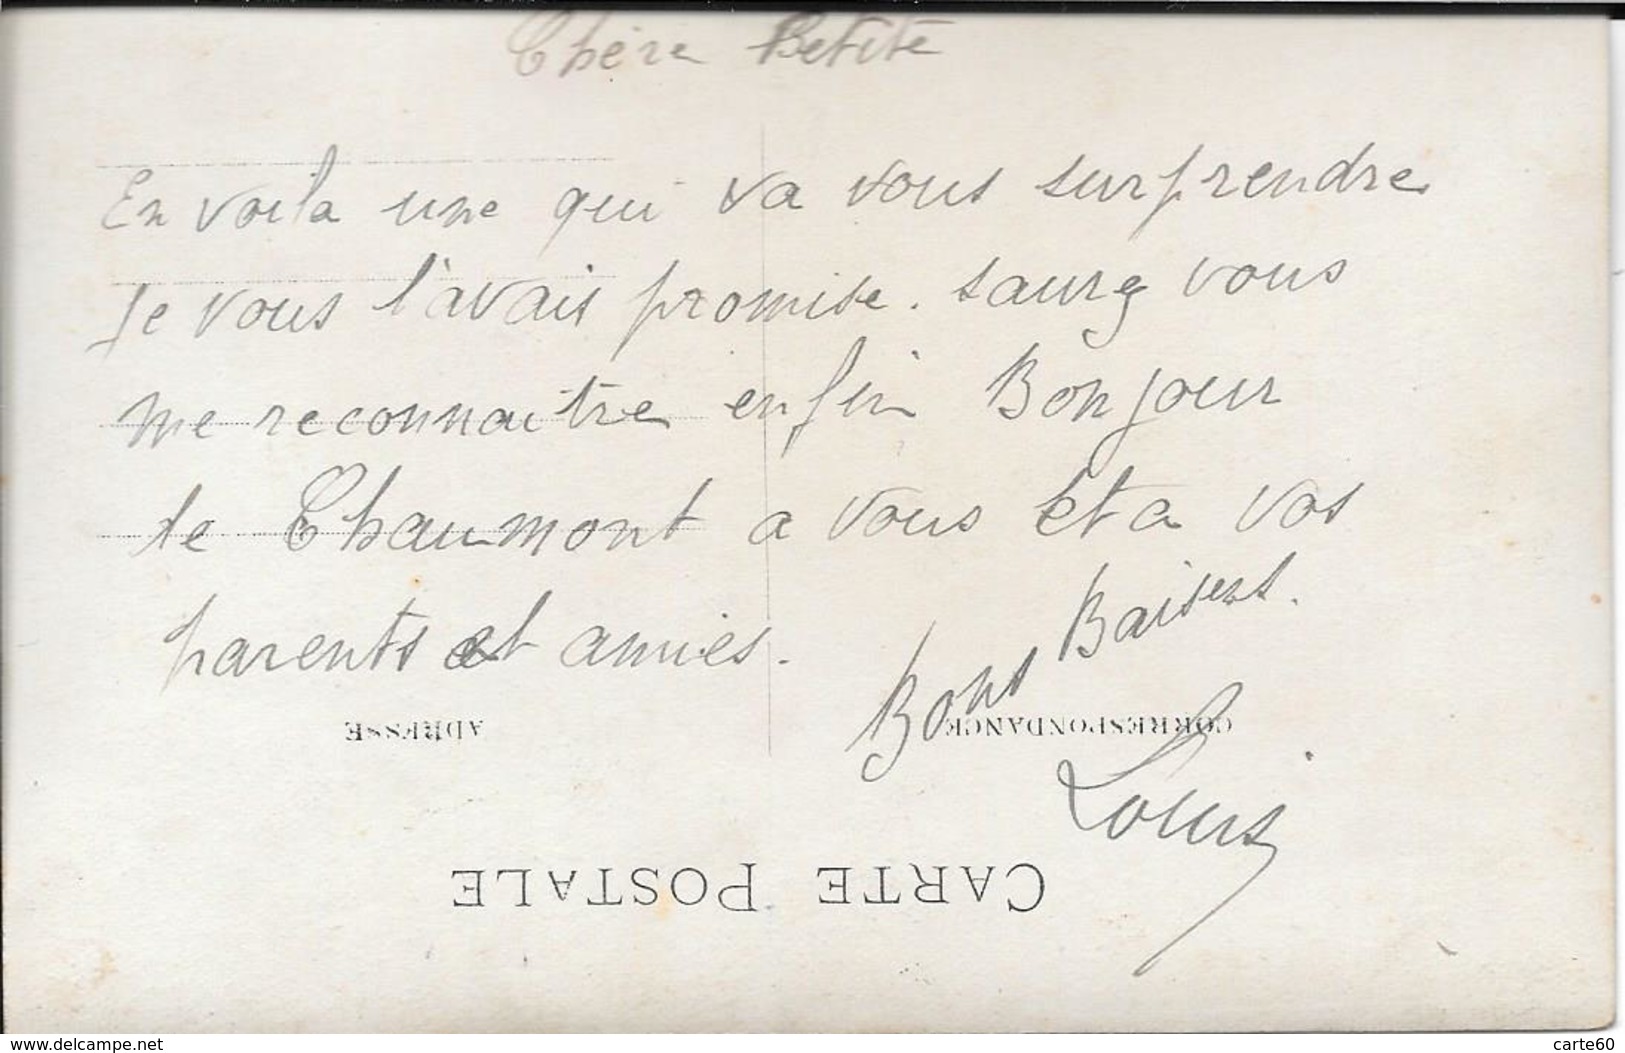 Chère Petite
En voila une qui va vous surprendre
Je vous l'avais promise. saurez vous
me reconnaitre enfin Bonjour
de Chaumont a vous et a vos
parents et amies.
Bons Baisers.
Louis
ADRESSE
CORRESPONDANCE
CARTE POSTALE
www.delcampe.net
carte60